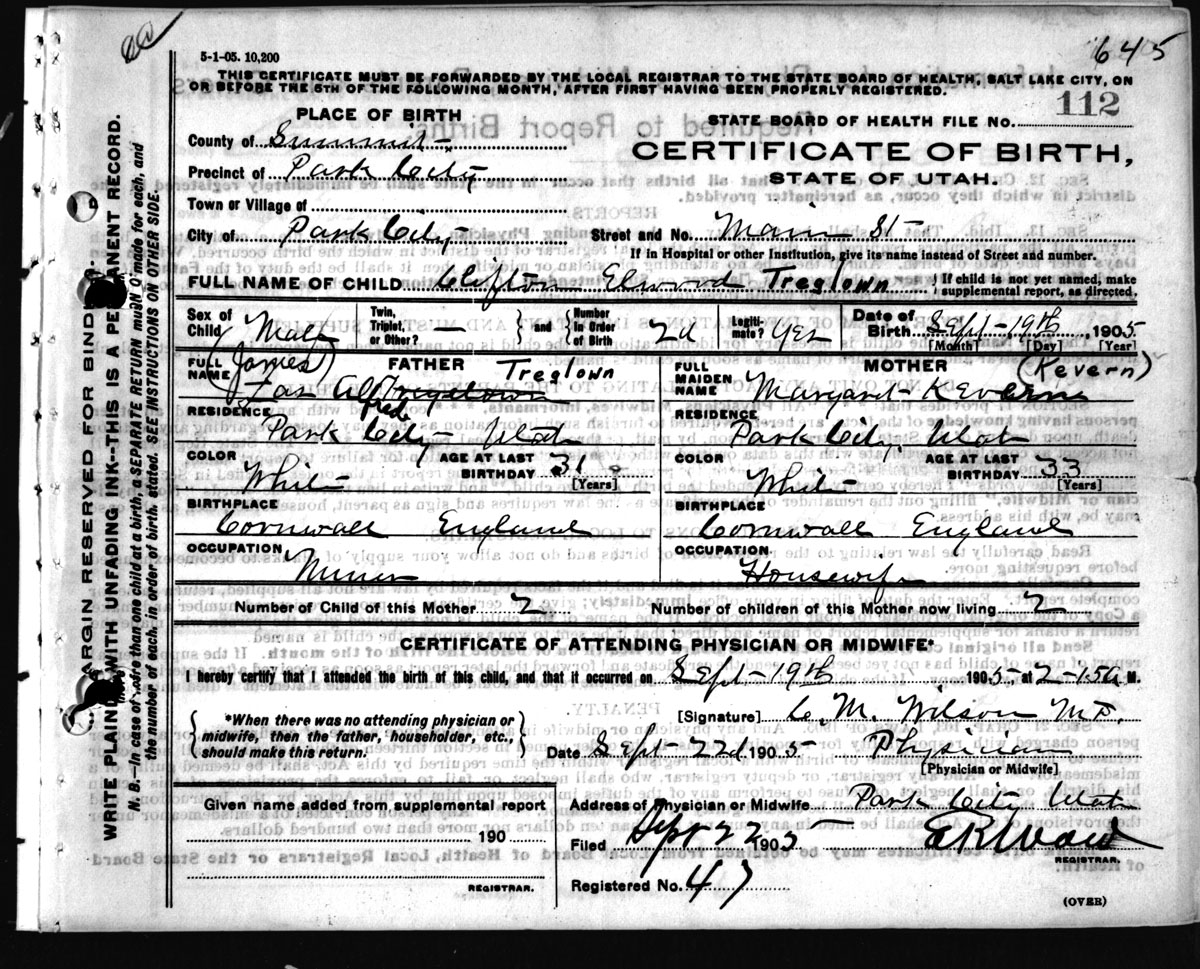 645
5-1-05. 10,200
THIS CERTIFICATE MUST BE FORWARDED BY THE LOCAL REGISTRAR TO THE STATE BOARD OF HEALTH, SALT LAKE CITY, ON
OR BEFORE THE 5TH OF THE FOLLOWING MONTH, AFTER FIRST HAVING BEEN PROPERLY REGISTERED.
PLACE OF BIRTH
STATE BOARD OF HEALTH FILE NO. 112
County of Summit
CERTIFICATE OF BIRTH,
Precinct of Park City
STATE OF UTAH.
Town or Village of
City of Park City Street and No. Main St
If in Hospital or other Institution, give its name instead of Street and number.
FULL NAME OF CHILD Clifton Elwood Treglown { If child is not yet named, make supplemental report, as directed.
Sex of Child Male Twin, Triplet, or Other? — and Number in Order of Birth 2d Legitimate? Yes Date of Birth Sept 19th 1905
[Month] [Day] [Year]
FULL NAME (James) FATHER Treglown
Jas Alfred
RESIDENCE
Park City Utah
COLOR White AGE AT LAST BIRTHDAY 31
[Years]
BIRTHPLACE
Cornwall England
OCCUPATION
Miner
FULL MAIDEN NAME MOTHER (Kevern)
Margaret
RESIDENCE
Park City Utah
COLOR White AGE AT LAST BIRTHDAY 33
[Years]
BIRTHPLACE
Cornwall England
OCCUPATION
Housewife
Number of Child of this Mother 2 Number of children of this Mother now living 2
CERTIFICATE OF ATTENDING PHYSICIAN OR MIDWIFE*
I hereby certify that I attended the birth of this child, and that it occurred on Sept 19th 1905, at 2-15a M.
{ *When there was no attending physician or
midwife, then the father, householder, etc.,
should make this return. }
[Signature] C. M. Wilson M.D.
Date Sept 22d 1905 Physician
[Physician or Midwife]
Given name added from supplemental report
190
REGISTRAR.
Address of Physician or Midwife Park City Utah
Filed Sept 22 1905
REGISTRAR.
Registered No. 47
(OVER)
MARGIN RESERVED FOR BINDING.
WRITE PLAINLY WITH UNFADING INK--THIS IS A PERMANENT RECORD.
N. B.—In case of more than one child at a birth, a SEPARATE RETURN must be made for each, and
the number of each, in order of birth, stated. SEE INSTRUCTIONS ON OTHER SIDE.